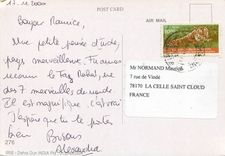 17.11.2000
POST CARD
AIR MAIL
Bonjour Maurice,
Une petite pensée d'Inde,
pays merveilleux. Tu connais
encore le Taj Mahal, une
des 7 merveilles du monde.
Il est magnifique.
J'espère que tu te portes
bien
Bisous
Alexandra
Mr NORMAND Maurice
7 rue de Vindé
78170 LA CELLE SAINT CLOUD
FRANCE
276